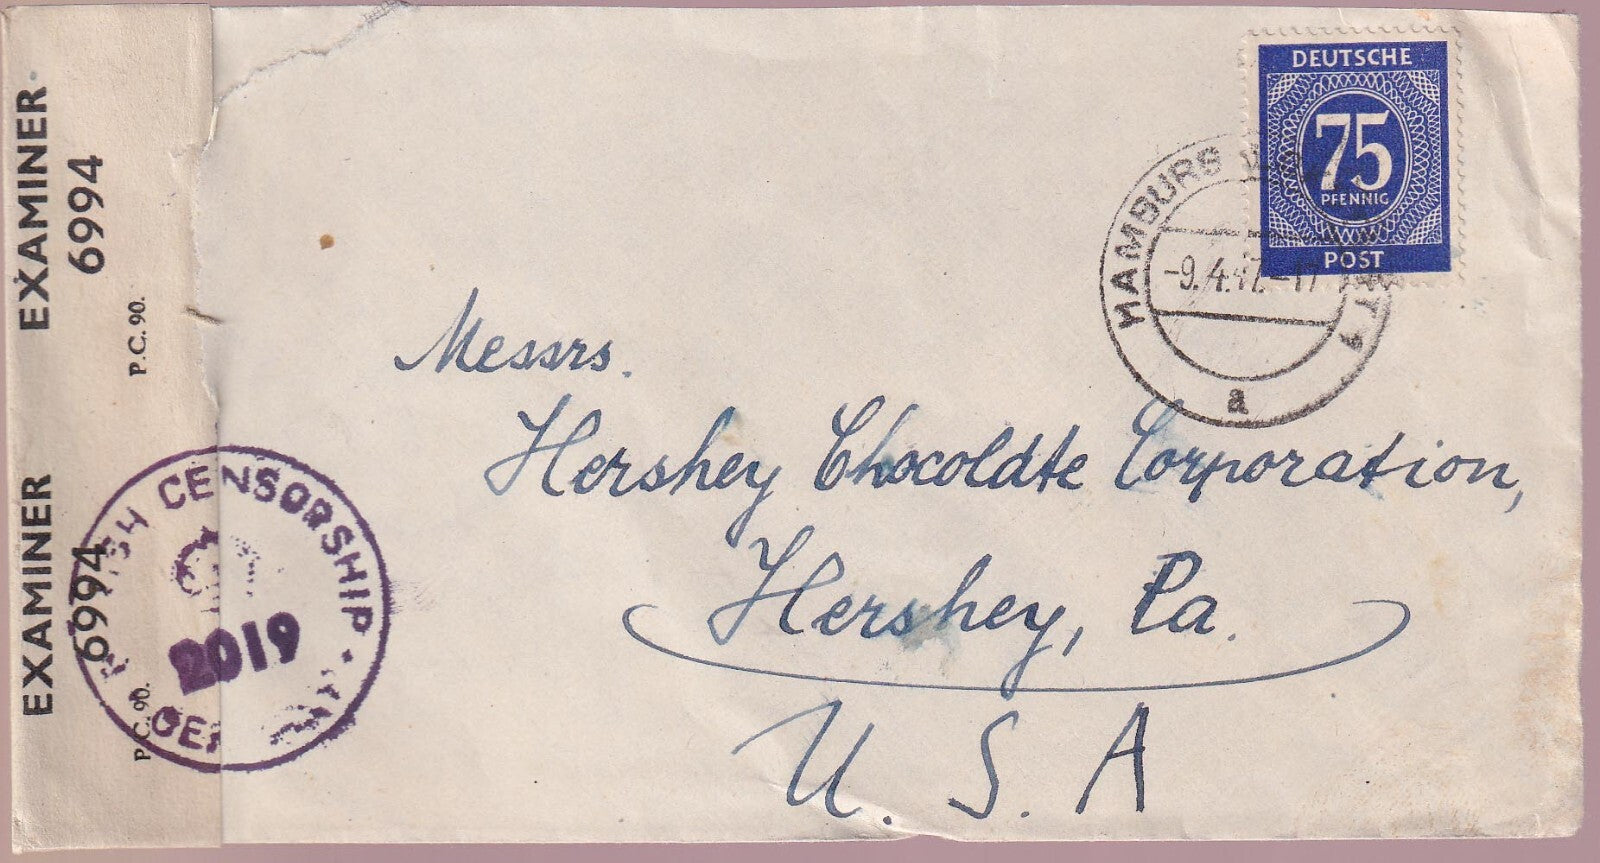 EXAMINER
6994
P.C. 90.
EXAMINER
6994
P.C. 90.
CENSORSHIP
2019
DEUTSCHE
75
PFENNIG
POST
HAMBURG
-9.4.47.-17
a
Messrs.
Hershey Chocolate Corporation,
Hershey, Pa.
U. S. A